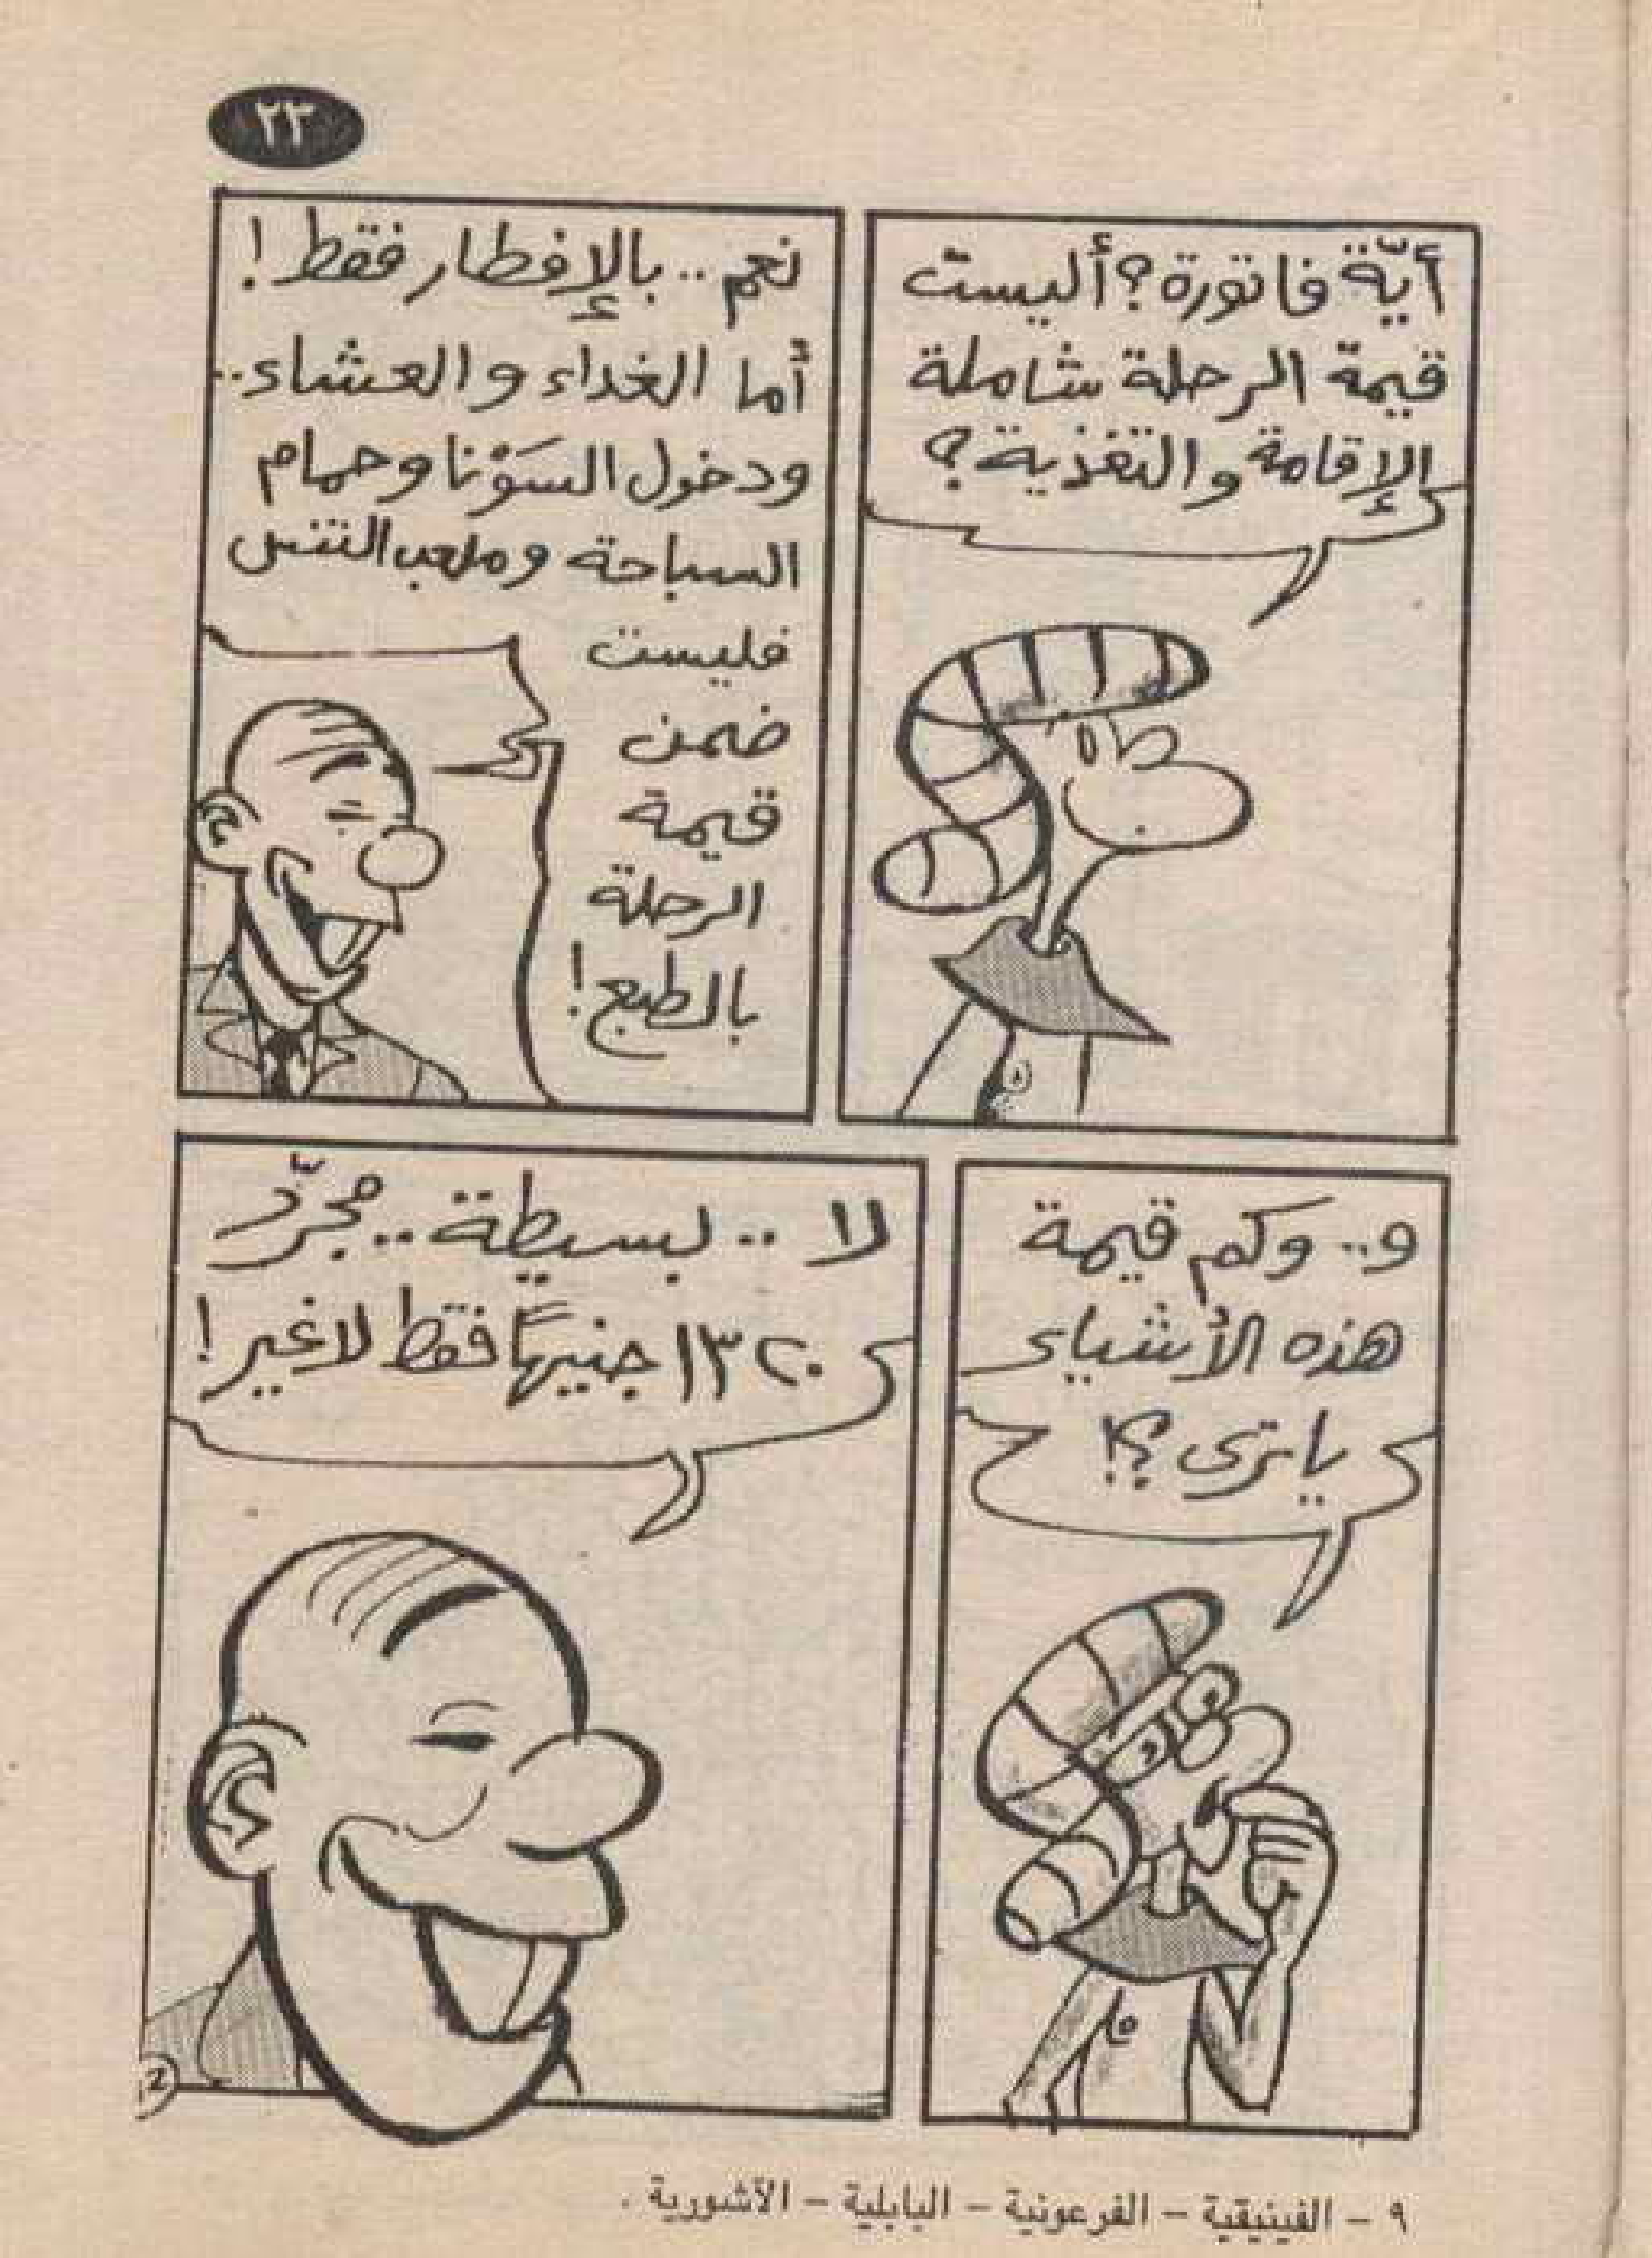 ٢٣
أيّة فاتورة؟ أليست
قيمة الرحلة شاملة
الإقامة والتغذية؟
نعم .. بالإفطار فقط!
أما الغداء والعشاء..
ودخول السَوْنا وحمام
السباحة وملعب التنس
فليست
ضمن
قيمة
الرحلة
بالطبع!
و.. وكم قيمة
هذه الأشياء
يا ترى؟!
لا .. بسيطة .. مجرّد
١٣٢٠ جنيهًا فقط لا غير!
2
٩ - الفينيقية - الفرعونية - البابلية - الآشورية .